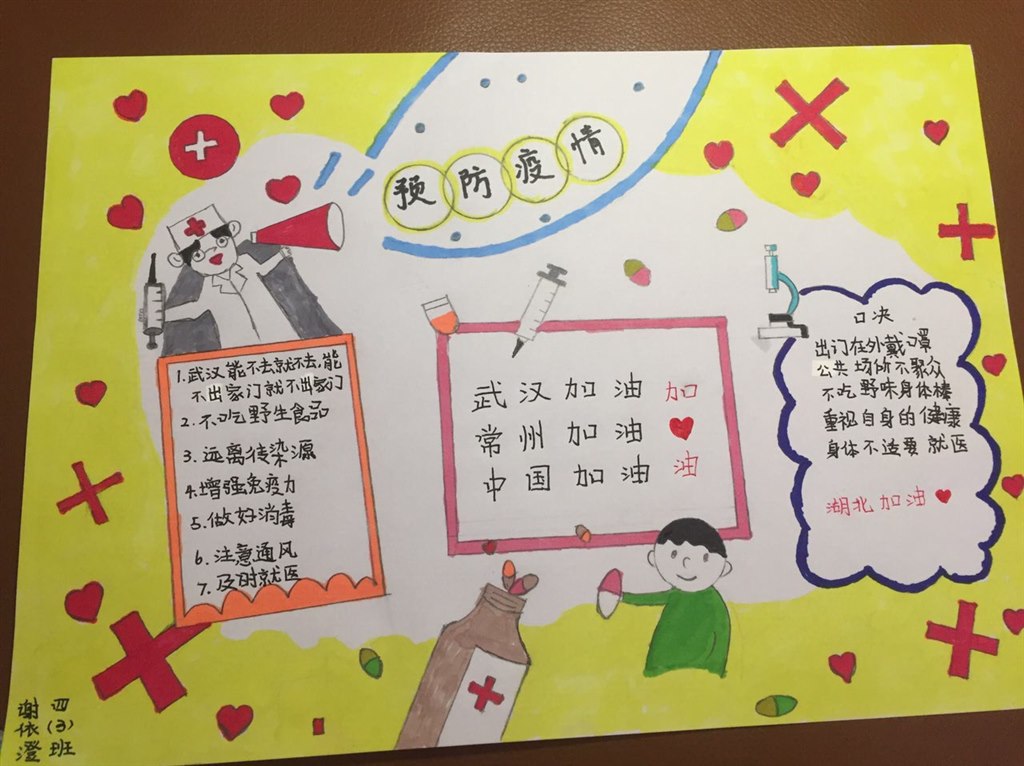 预防疫情
1.武汉能不去就不去,能
不出家门就不出家门
2.不吃野生食品
3.远离传染源
4.增强免疫力
5.做好消毒
6.注意通风
7.及时就医
武汉加油
常州加油
中国加油
加
油
口决
出门在外戴口罩
公共场所不聚众
不吃野味身体棒
重视自身的健康
身体不适要就医
湖北加油
四(3)班
谢依澄